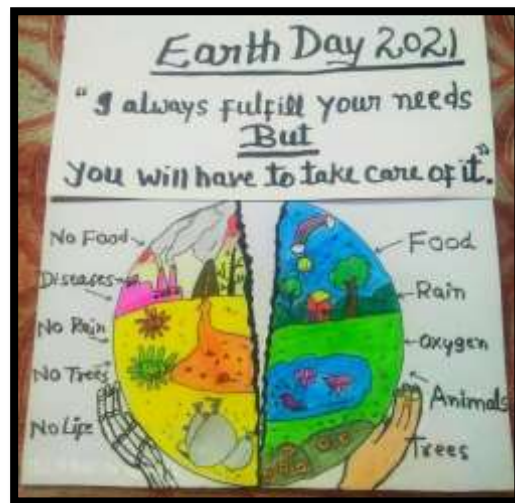 Earth Day 2021
"I always fulfill your needs
But
you will have to take care of it."
No Food
Diseases
No Rain
No Trees
No Life
Food
Rain
Oxygen
Animals
Trees